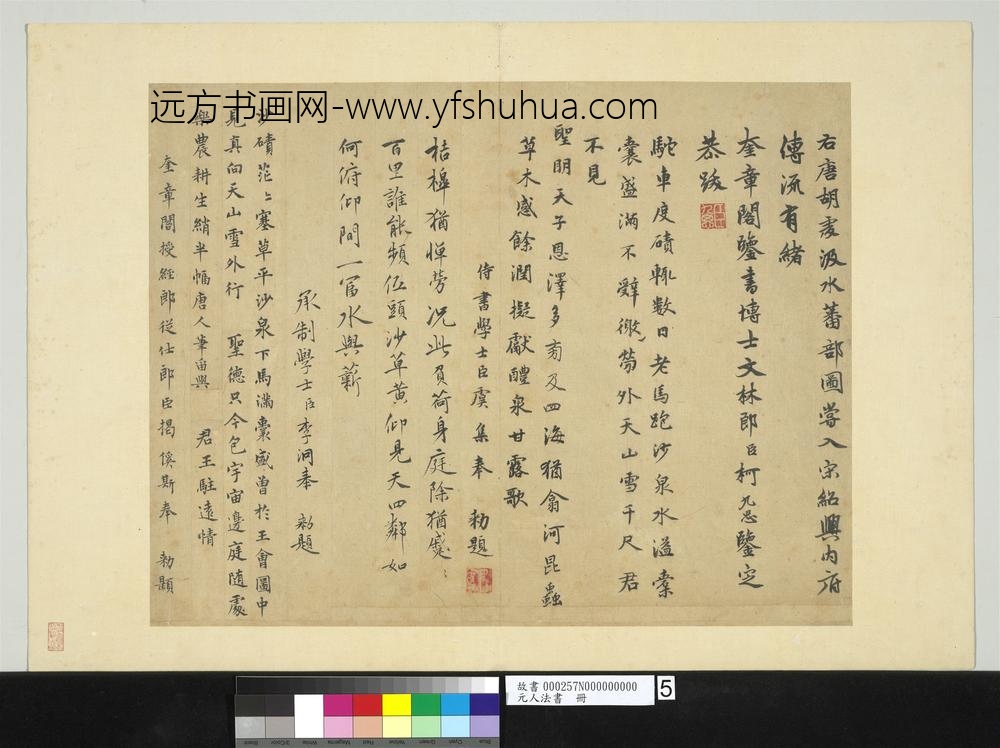 远方书画网-www.yfshuhua.com
右唐胡虔汲水蕃部圖嘗入宋紹興内府
傳流有緒
奎章閣鑒書博士文林郎臣柯九思鑒定
恭跋
駝車度磧輒數日老馬跑沙泉水溢橐
囊盛滿不辭微勞外天山雪千尺君
不見
聖明天子恩澤多育及四海猶翕河昆蟲
草木感餘潤擬獻醴泉甘露歌
侍書學士臣虞集奉勑題
桔橰猶憚勞況此負荷身庭除猶蹙〻
百里誰能頻伍頭沙草黄仰見天四鄰如
何俯仰間一冨水與薪
承制學士臣李泂奉勑題
沙磧茫〻塞草平沙泉下馬滿囊盛曽於王會圖中
見真向天山雪外行聖德只今包宇宙邊庭随處
樂農耕生綃半幅唐人筆留與君王駐遠情
奎章閣授經郎從仕郎臣揭傒斯奉勑題
故書000257N000000000
元人法書 冊
5
Blue
Cyan
Green
Yellow
Red
Magenta
White
3/Color
Black